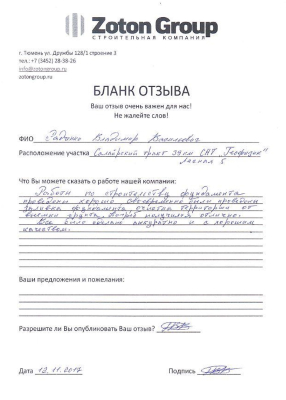 Zoton Group
СТРОИТЕЛЬНАЯ КОМПАНИЯ
г. Тюмень ул. Дружбы 128/1 строение 3
тел.: +7 (3452) 28-38-26
info@zotongroup.ru
zotongroup.ru
БЛАНК ОТЗЫВА
Ваш отзыв очень важен для нас!
Не жалейте слов!
ФИО Владимир
Расположение участка Салаирский тракт 39 км СНТ "Геофизик"
Лесная 5
Что Вы можете сказать о работе нашей компании:
Работы по строительству фундамента
проведены хорошо. Своевременно были проведены
заливка фундамента, очистка территории от
грунта. получился отлично.
Все было сделано аккуратно и в хорошем
качестве.
Ваши предложения и пожелания:
Разрешите ли Вы опубликовать Ваш отзыв?
Дата 12.11.2017 Подпись